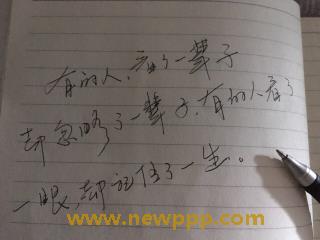 有的人，看了一辈子
却忽略了一辈子，有的人看了
一眼，却记住了一生。
www.newppp.com